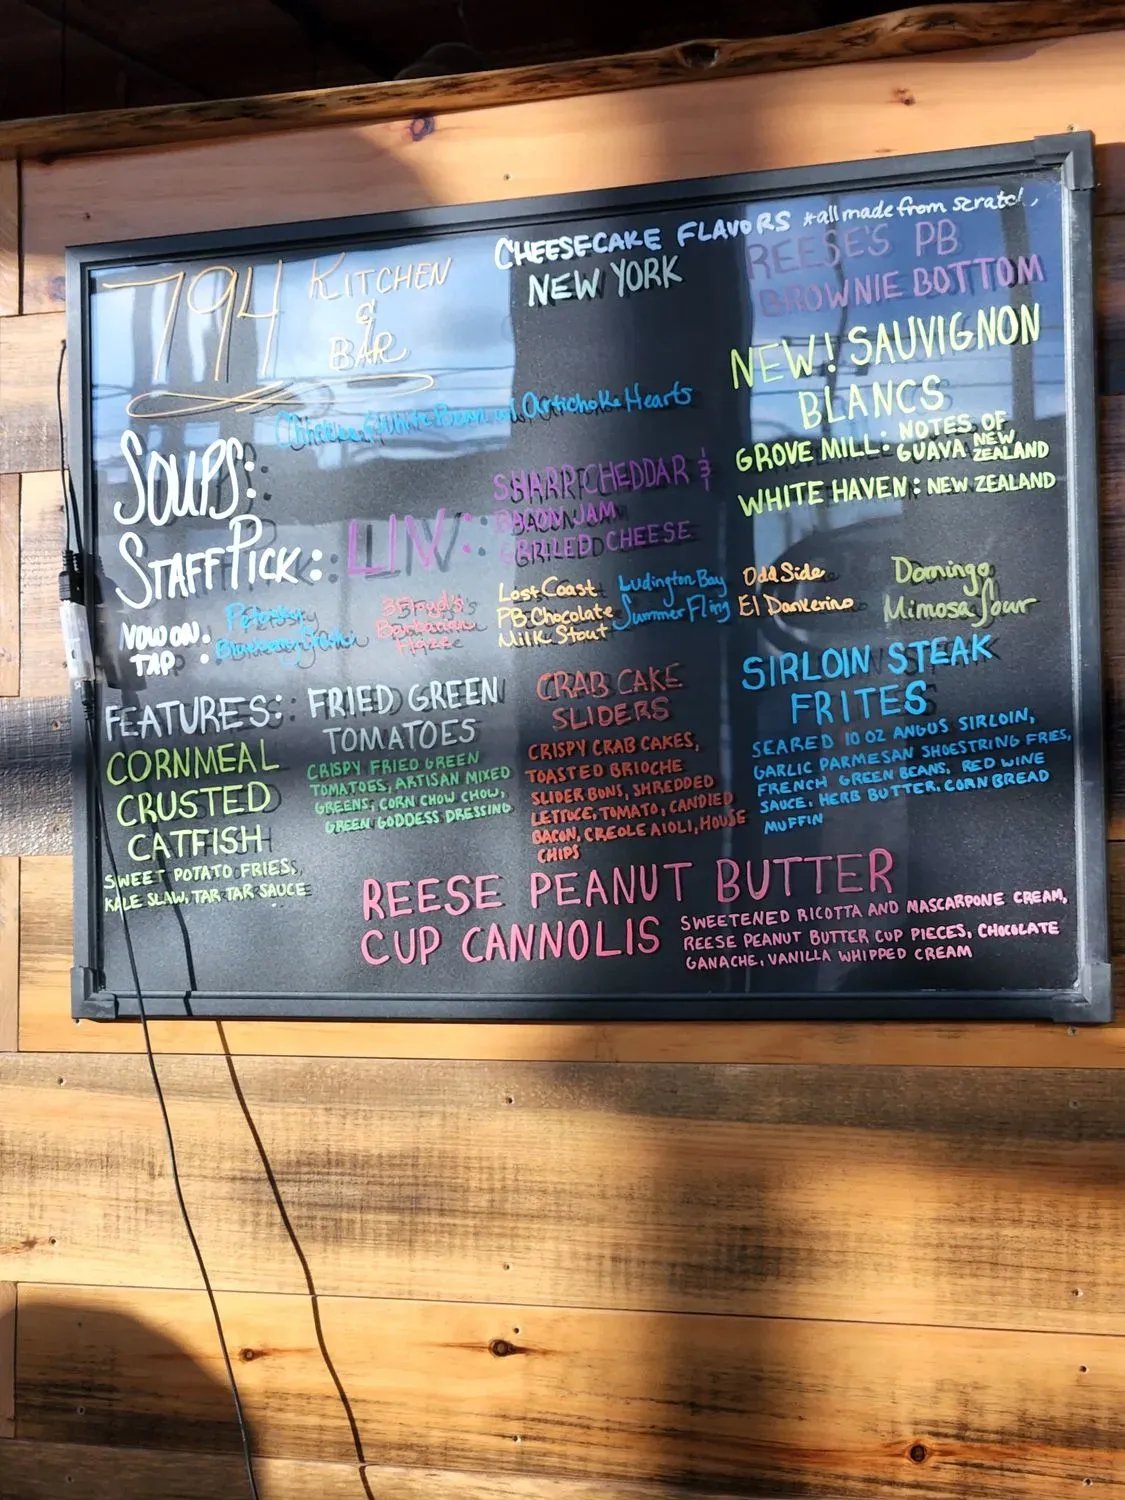 CHEESECAKE FLAVORS *all made from scratch
NEW YORK
REESE'S PB
BROWNIE BOTTOM
794 KITCHEN
&
BAR
NEW! SAUVIGNON
BLANCS
GROVE MILL: NOTES OF
GUAVA NEW
ZEALAND
WHITE HAVEN: NEW ZEALAND
SOUPS:
White Bean w/ Artichoke Hearts
STAFF PICK:
LIV:
SHARP CHEDDAR &
BACON JAM
GRILLED CHEESE
NOW ON
TAP :
Petoskey
Blueberry
Barbarian
Haze
Lost Coast
PB Chocolate
Milk Stout
Ludington Bay
Summer Fling
Odd Side
El Dankerino
Domingo
Mimosa Sour
FEATURES:
CORNMEAL
CRUSTED
CATFISH
SWEET POTATO FRIES,
KALE SLAW, TAR TAR SAUCE
FRIED GREEN
TOMATOES
CRISPY FRIED GREEN
TOMATOES, ARTISAN MIXED
GREENS, CORN CHOW CHOW,
GREEN GODDESS DRESSING
CRAB CAKE
SLIDERS
CRISPY CRAB CAKES,
TOASTED BRIOCHE
SLIDER BUNS, SHREDDED
LETTUCE, TOMATO, CANDIED
BACON, CREOLE AIOLI, HOUSE
CHIPS
SIRLOIN STEAK
FRITES
SEARED 10 OZ ANGUS SIRLOIN,
GARLIC PARMESAN SHOESTRING FRIES,
FRENCH GREEN BEANS, RED WINE
SAUCE, HERB BUTTER, CORN BREAD
MUFFIN
REESE PEANUT BUTTER
CUP CANNOLIS
SWEETENED RICOTTA AND MASCARPONE CREAM,
REESE PEANUT BUTTER CUP PIECES, CHOCOLATE
GANACHE, VANILLA WHIPPED CREAM